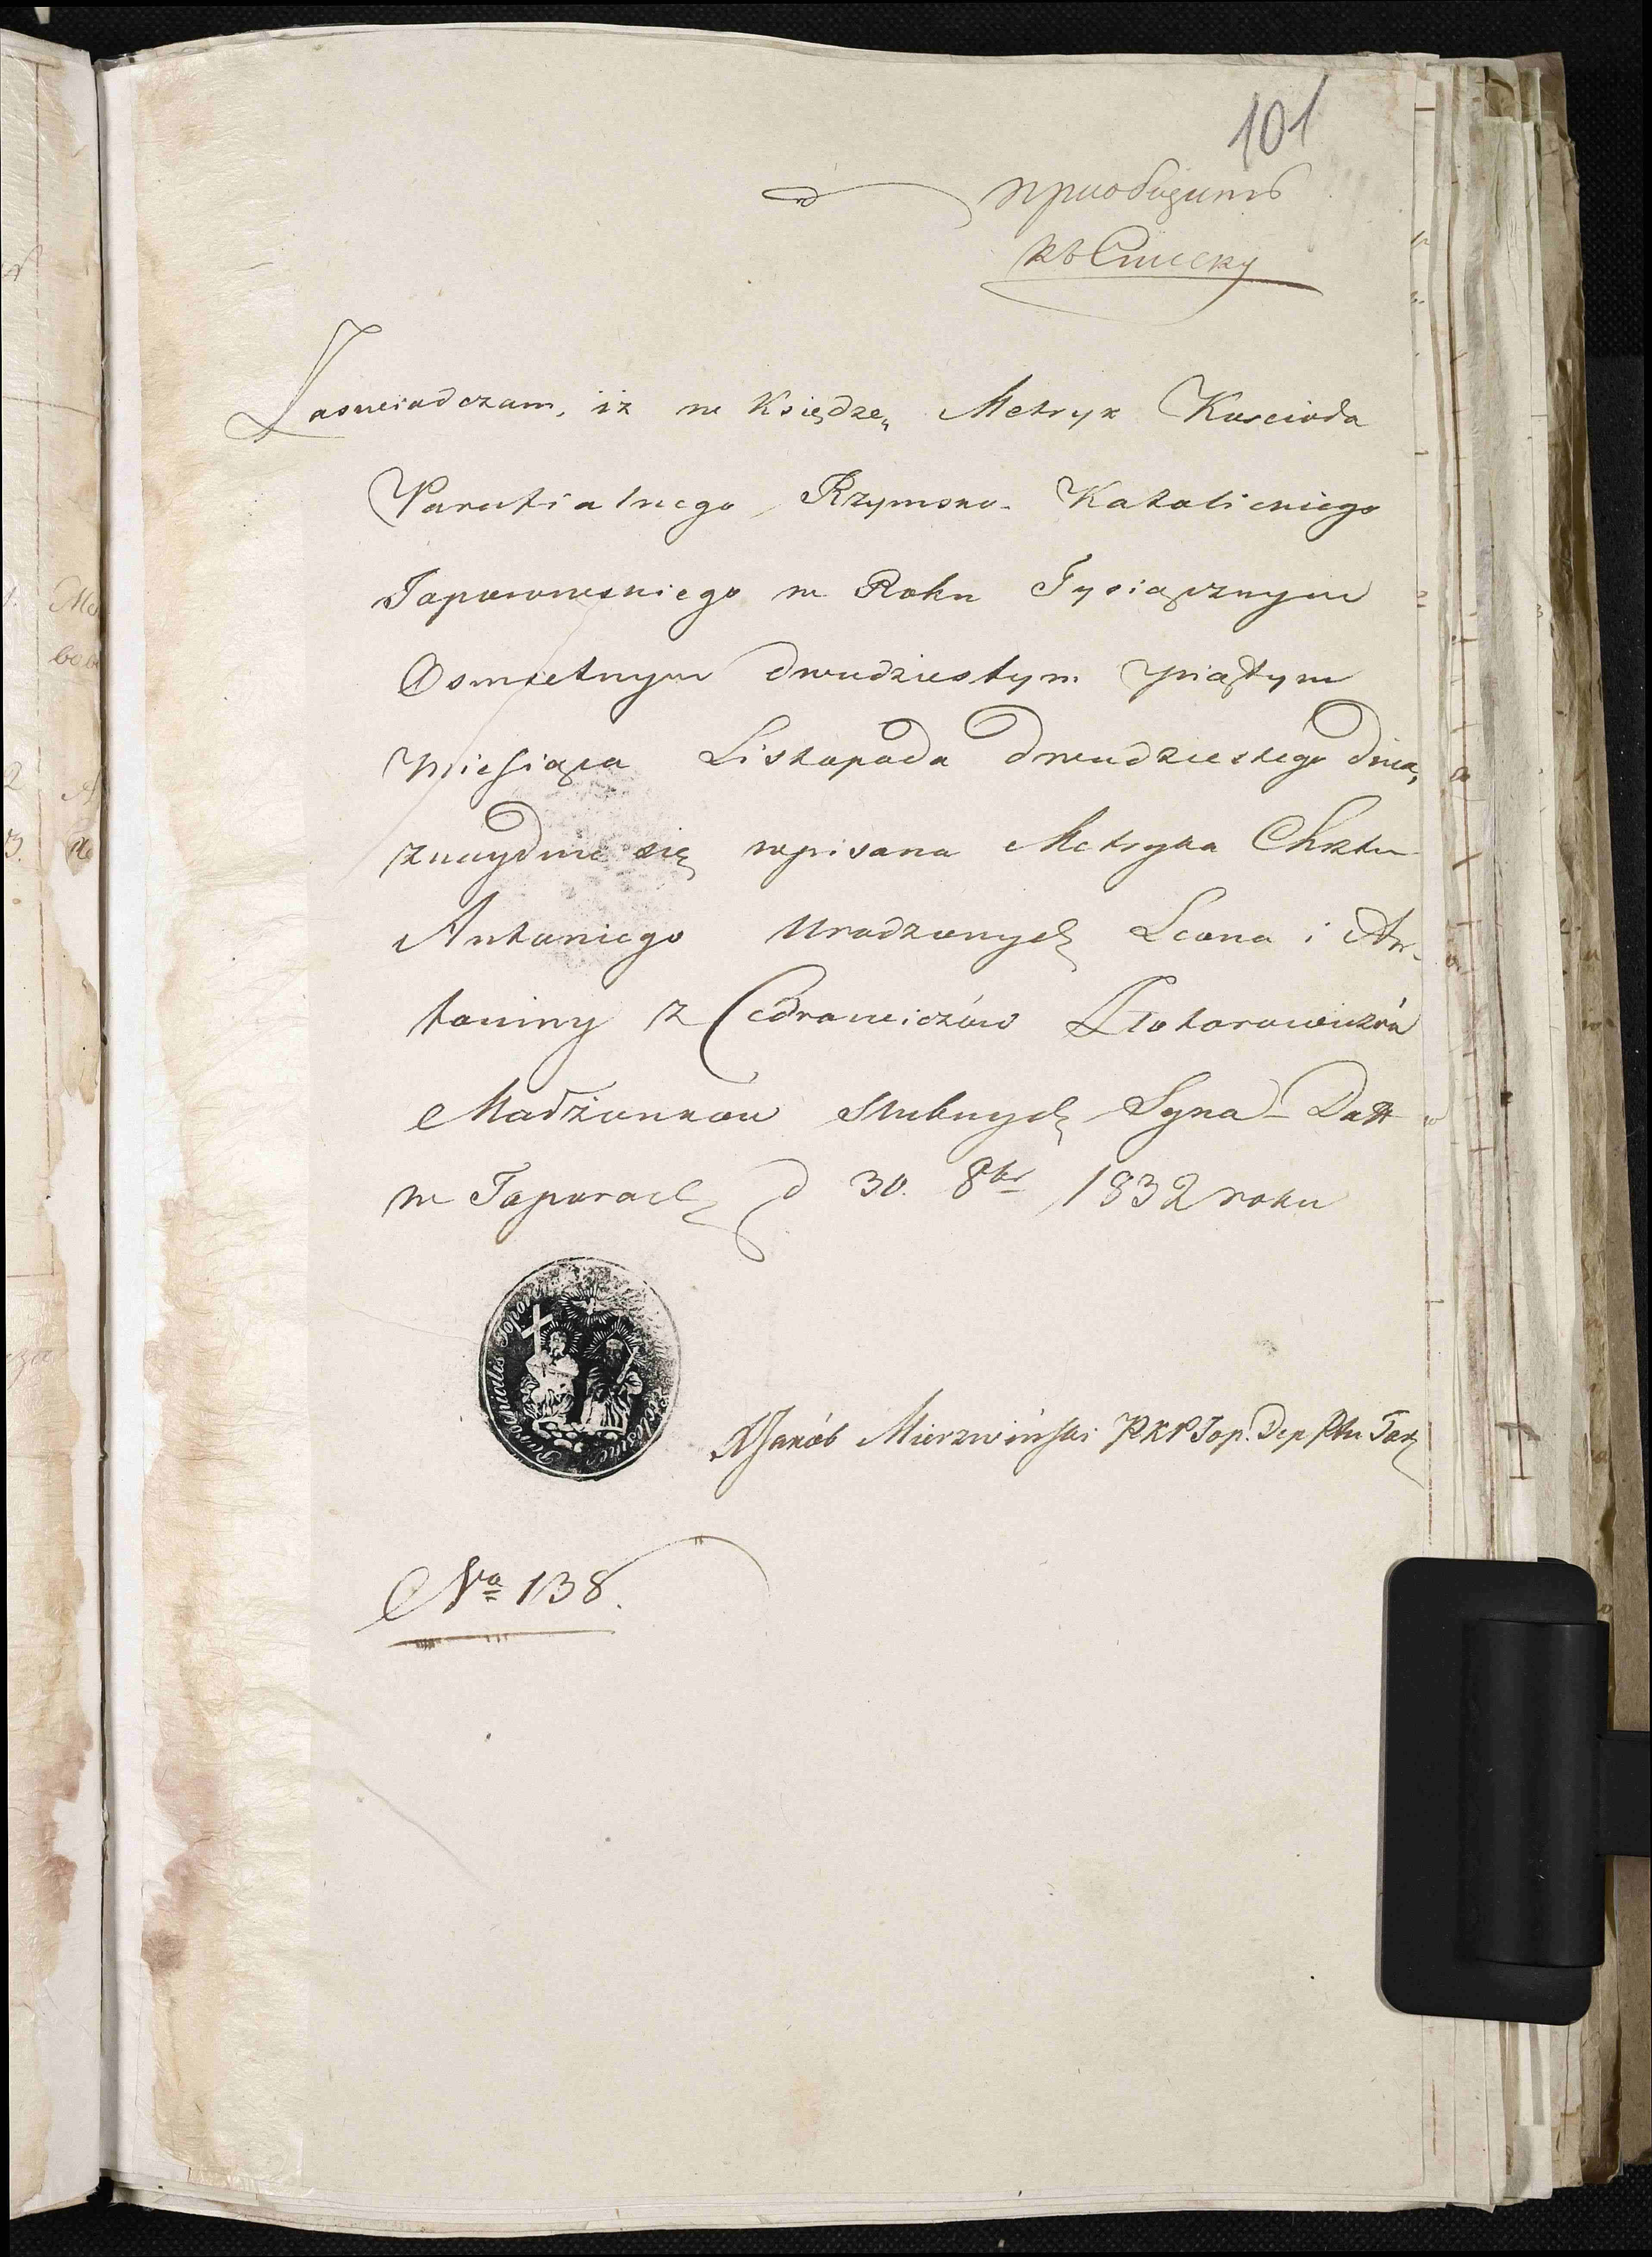 101
приобщить
къ Списку
Zaswiadczam, iż w Księdzę Metryk Koscioła
Parafialnego Rzymsko-Katolickiego
Toporowskiego w Roku Tysiącznym
Osmsetnym dwudziestym piątym
Miesiąca Listopada dwudziestego dnia,
znayduie się wpisana Metryka Chrztu
Antoniego Urodzonych Leona i An-
toniny z Cedrowiczów
Małżonkow slubnych Syna - Datt
w Toporach d 30. 8br 1832 roku
Parochialis Topor
X Jakób Mierzwiński PKP Top. Dep Ptu
No 138.